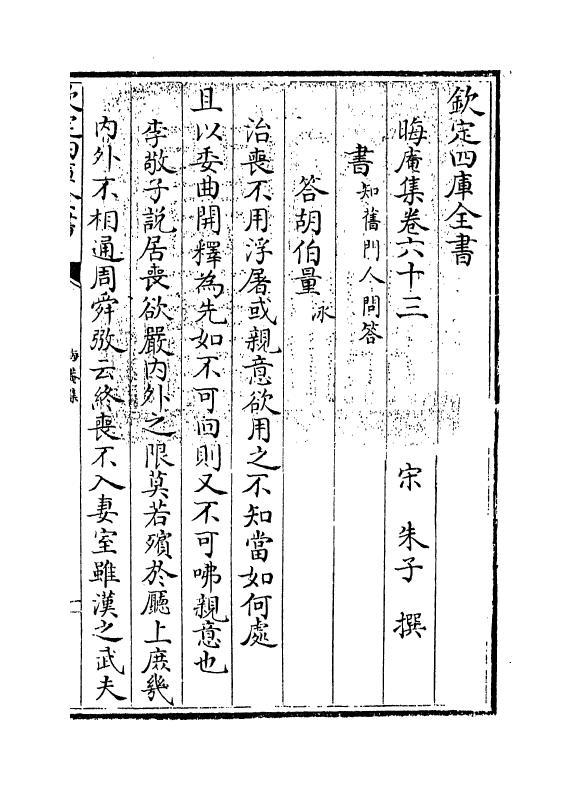 欽定四庫全書
晦庵集卷六十三
宋 朱子 撰
書知舊門人問答
答胡伯量泳
治喪不用浮屠或親意欲用之不知當如何處
且以委曲開釋為先如不可回則又不可咈親意也
李敬子説居喪欲嚴内外之限莫若殯於廳上庶幾
内外不相通周舜弼云終喪不入妻室雖漢之武夫